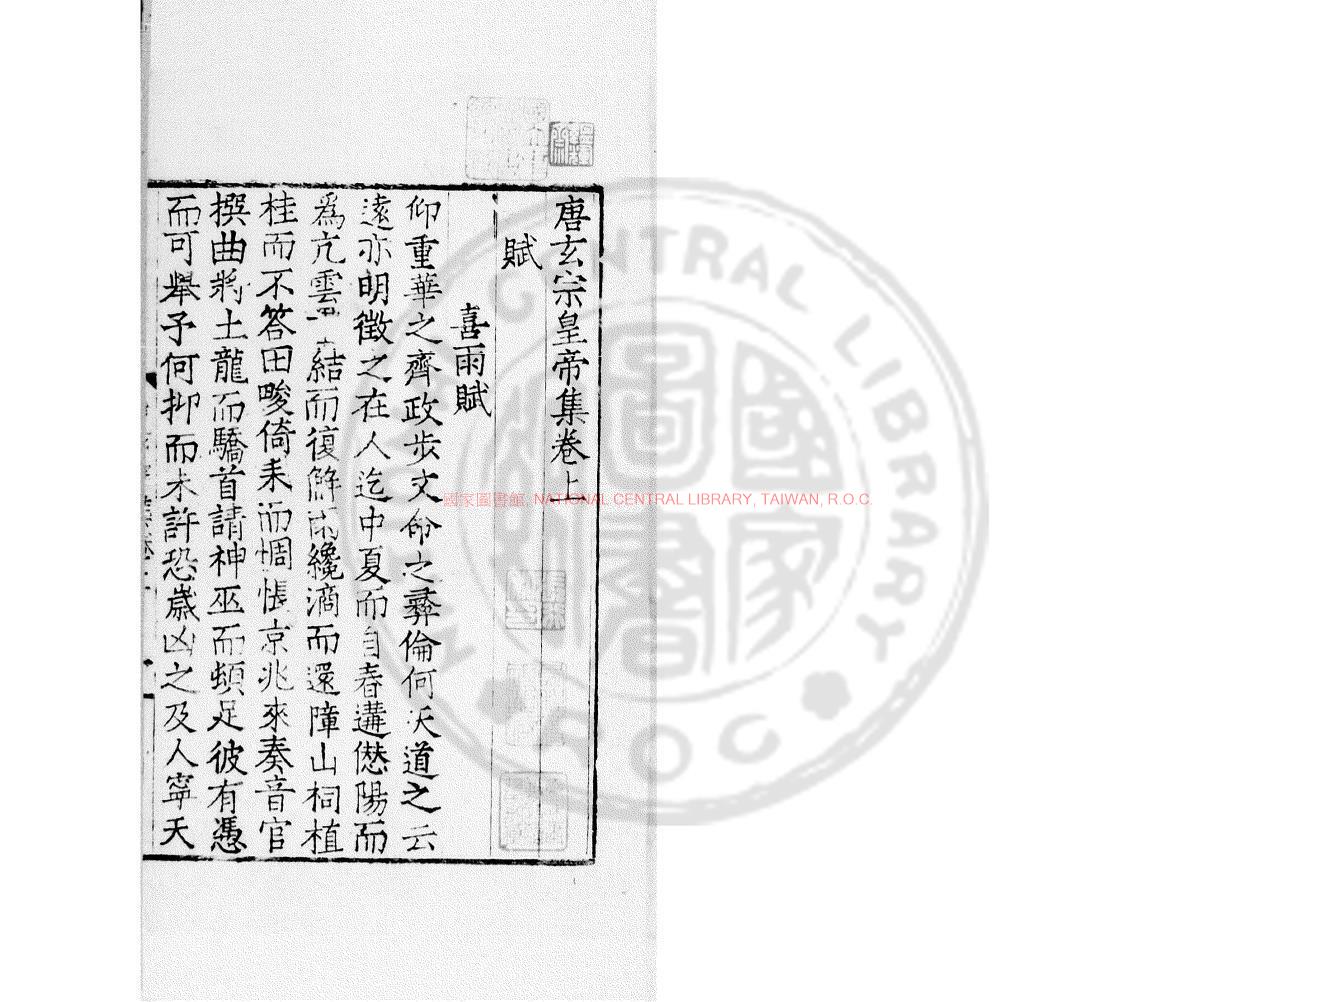 唐玄宗皇帝集卷上
賦
喜雨賦
仰重華之齊政步文命之彞倫何沃道之云
遠亦明徵之在人迄中夏而自春遘僽陽而
爲亢雲結而復解雨纔滴而還障山祠植
桂而不答田畯倚耒而惆悵京兆來奏音官
撰曲將土龍而驕首請神巫而頓足彼有憑
而可舉予何抑而未許恐嵗凶之及人寧天
國家圖書館, NATIONAL CENTRAL LIBRARY, TAIWAN, R.O.C.
NATIONAL CENTRAL LIBRARY
ROC
國家圖書